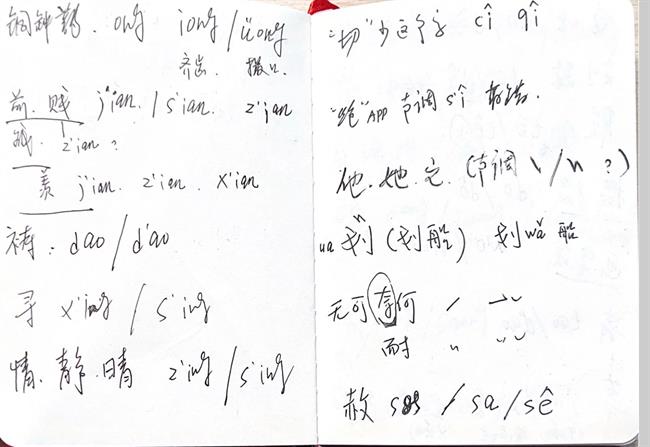 铜钟鹅. ong iong/üong
齐齿. 撮口.
前. 贱 j'ian./s'ian. z'ian
贱. z'ian?
羡 j'ian. z'ian. x'ian
祷: dao/d'ao
寻 x'ing/s'ing
情.静.晴 z'ing/s'ing
"切"少这个字 cî qî
"绝"APP 声调 s'î 有错.
他.她.它. (声调 \/n ?)
ua 划 (划船) 划wǎ船
无可奈何 /
耐 "
赦 /sa/sê